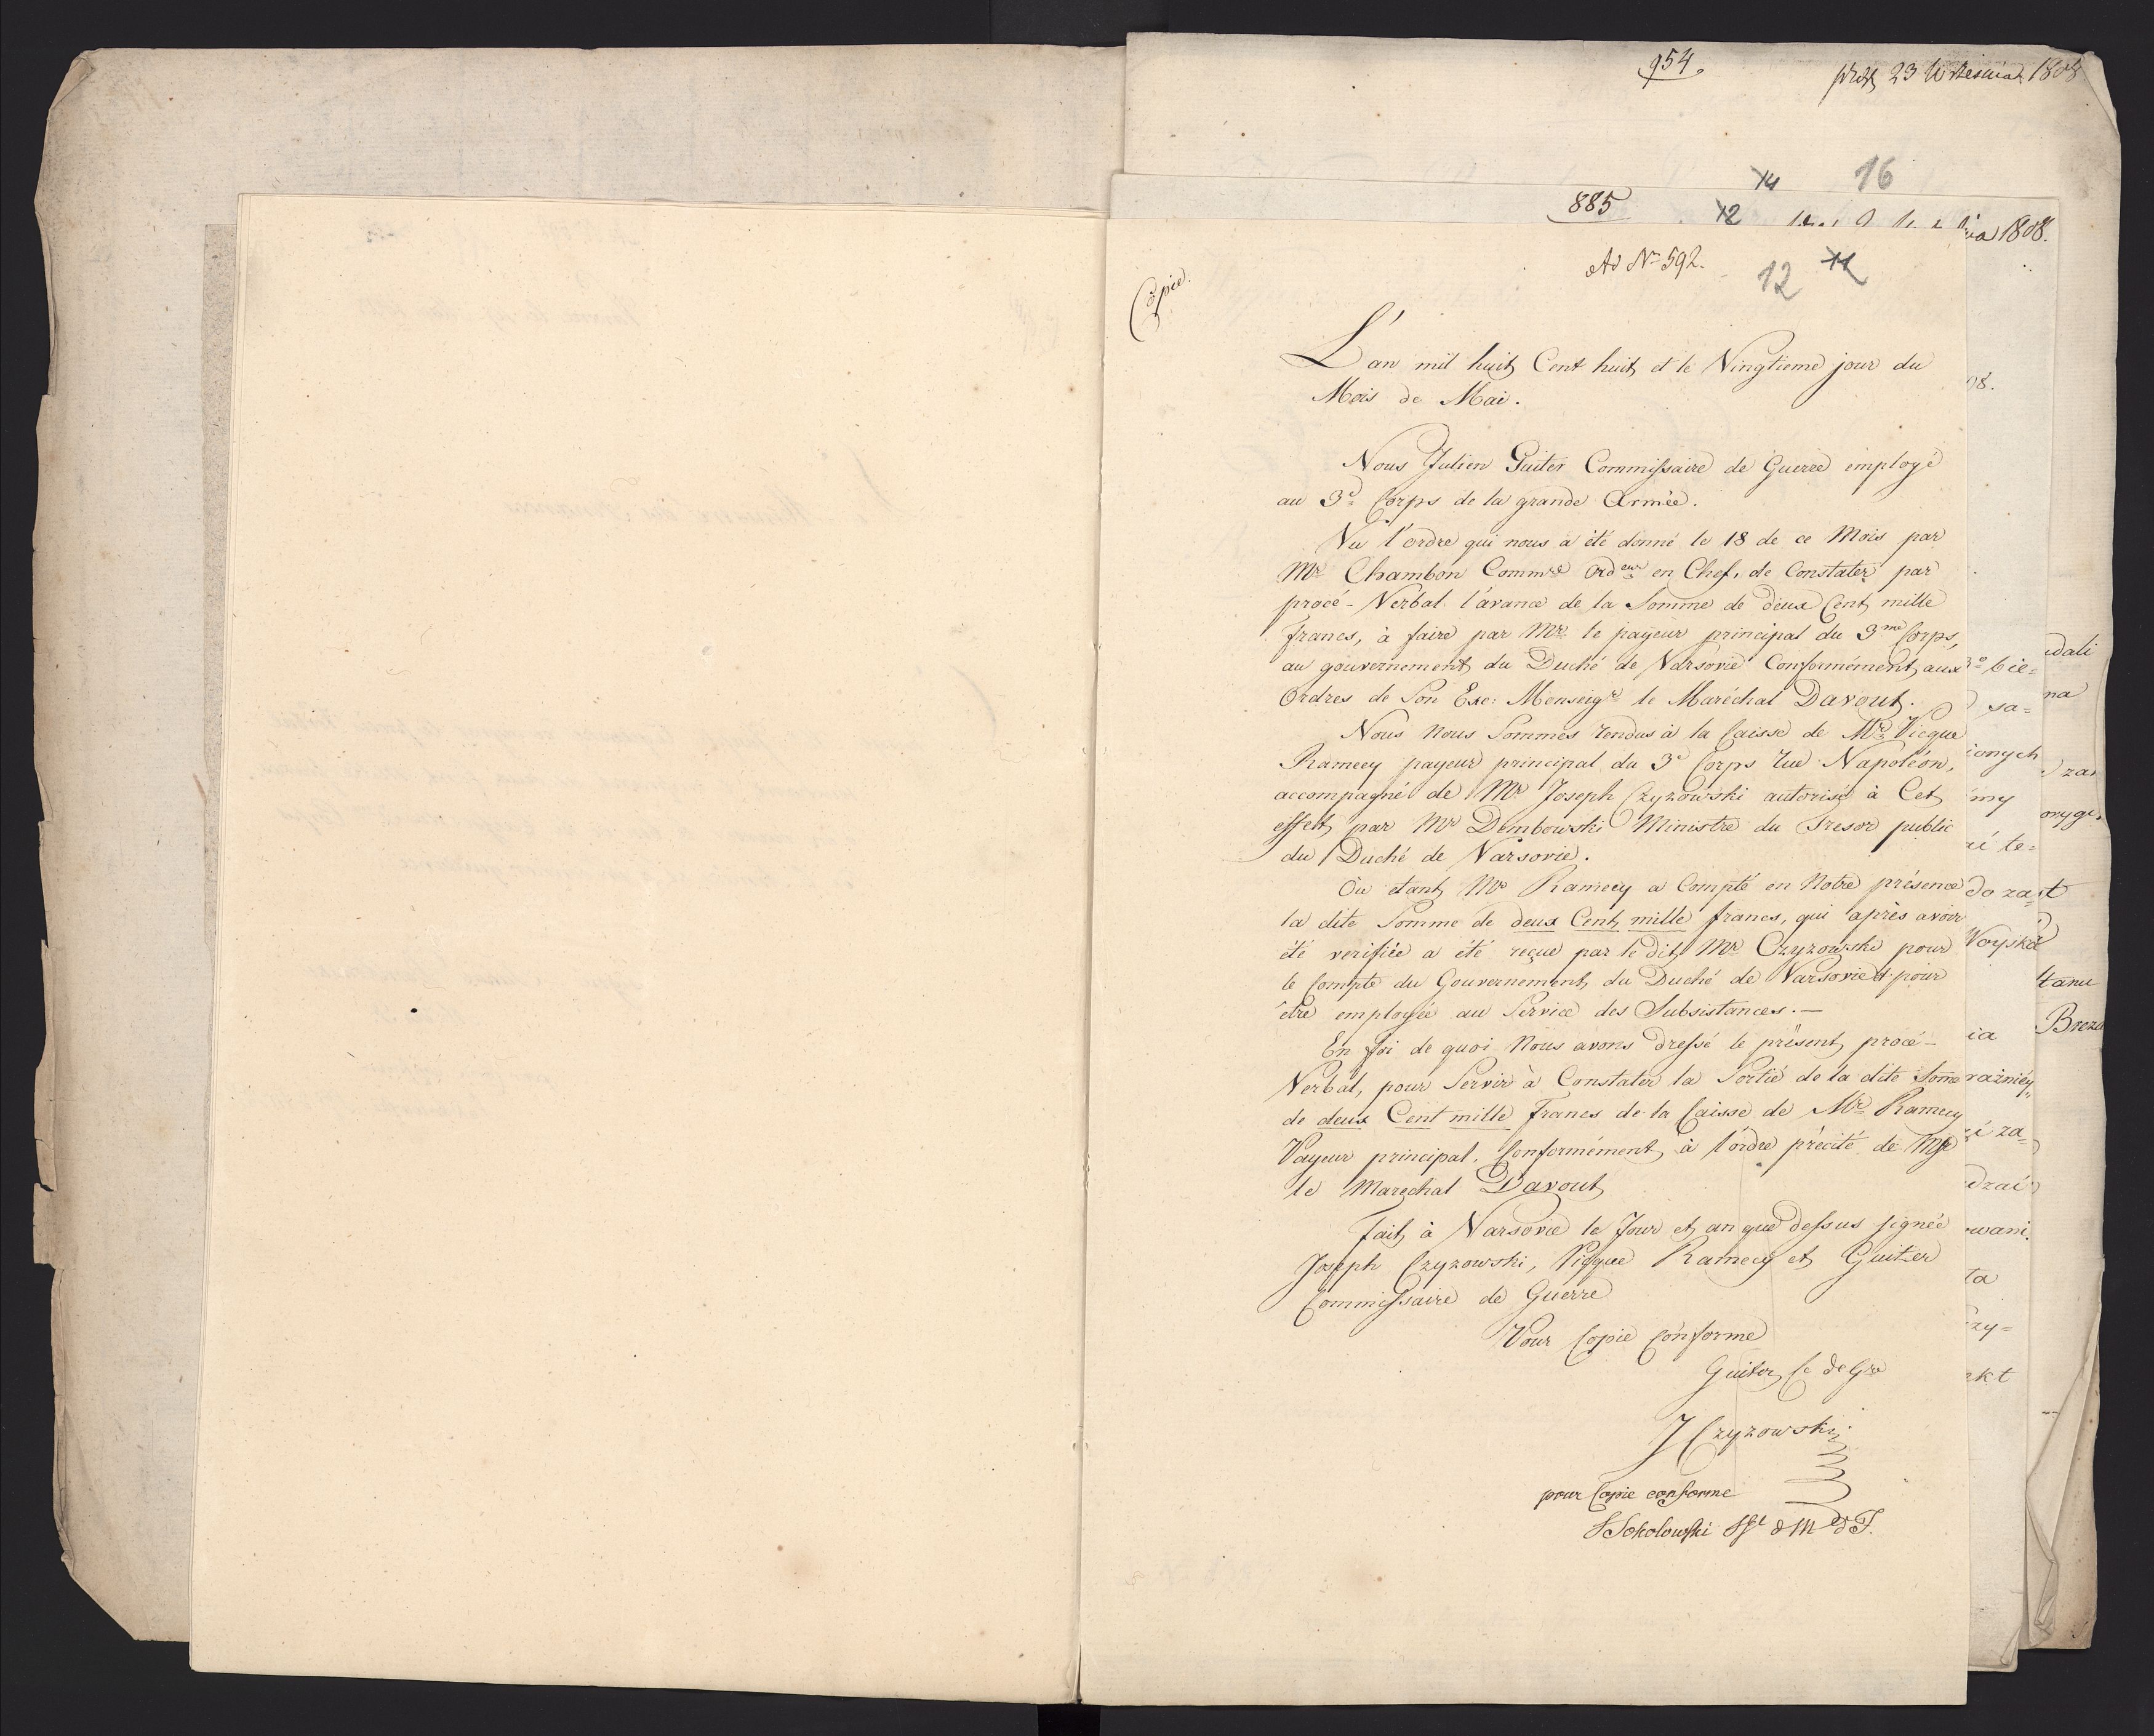 954.
23 Września 1808
14
16
885
12
nia 1808.
Ad Nr. 592.
12 11
Copie.
L'an mil huit Cent huit et le Vingtieme jour du
Mois de Mai.
Nous Julien Guiter Commissaire de Guerre employé
au 3e Corps de la grande Armée.
Vu l'ordre qui nous a été donné le 18 de ce Mois par
Mr Chambon Commre Ordeur en Chef, de Constater par
procé-Verbal l'avance de la Somme de deux Cent mille
francs, à faire par Mr le payeur principal du 3me Corps,
au gouvernement du Duché de Varsovie Conformément aux
Ordres de Son Exc: Monseigr le Maréchal Davout.
Nous nous Sommes rendus à la Caisse de Mr Vicque
Ramecy payeur principal du 3e Corps rue Napoléon,
accompagné de Mr Joseph Czyzowski autorisé à Cet
effet par Mr Dembowski Ministre du Tresor public
du Duché de Varsovie.
Où étant Mr Ramecy a Compté en Notre présence
la dite Somme de deux Cent mille francs, qui après avoir
été verifiée a été reçue par le dit Mr Czyzowski pour
le Compte du Gouvernement du Duché de Varsovie et pour
être employée au Service des Subsistances.—
En foi de quoi Nous avons dressé le présent procé-
Verbal, pour Servir à Constater la Sortie de la dite Some
de deux Cent mille Francs de la Caisse de Mr Ramecy
Payeur principal, Conformément à l'ordre précité de Mgr
le Marechal Davout
Fait à Varsovie le Jour et an que dessus signée
Joseph Czyzowski, Vicque Ramecy et Guiter
Commissaire de Guerre
Pour Copie Conforme
Guiter Ce de Gre
J Czyzowski
pour Copie conforme
Sokolowski
08.
bie=
sa=
ionych
my
le=
do za=
Woyska
ia
raźniéy
za=
dzai
wani
ta
zy=
akt
dali
na
zar
onyge
t
tanu
Breza